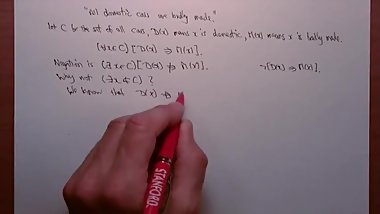 "All domestic cars are badly made."
Let C be the set of all cars, D(x) means x is domestic, M(x) means x is badly made.
(∀x∈C)[D(x) ⇒ M(x)].
Negation is (∃x∈C)[D(x) ⇏ M(x)]. ¬[D(x) ⇒ M(x)].
Why not (∃x∉C) ?
We know that D(x) ⇏
STANFORD